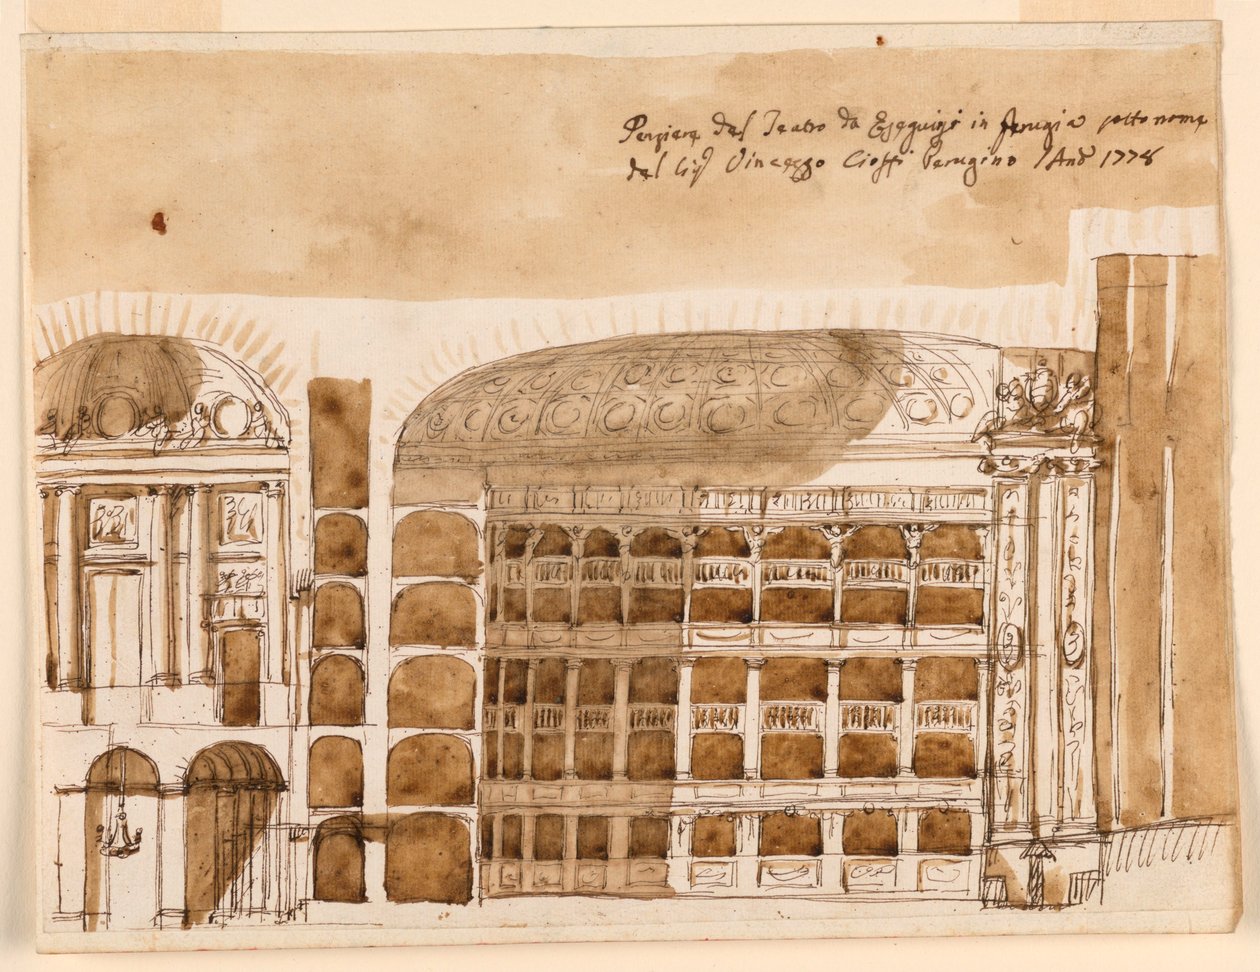 Pensiere del Teatro da Eseguirsi in Perugia sotto nome
del Sig. Vincenzo Cioffi Perugino l'Anno 1778